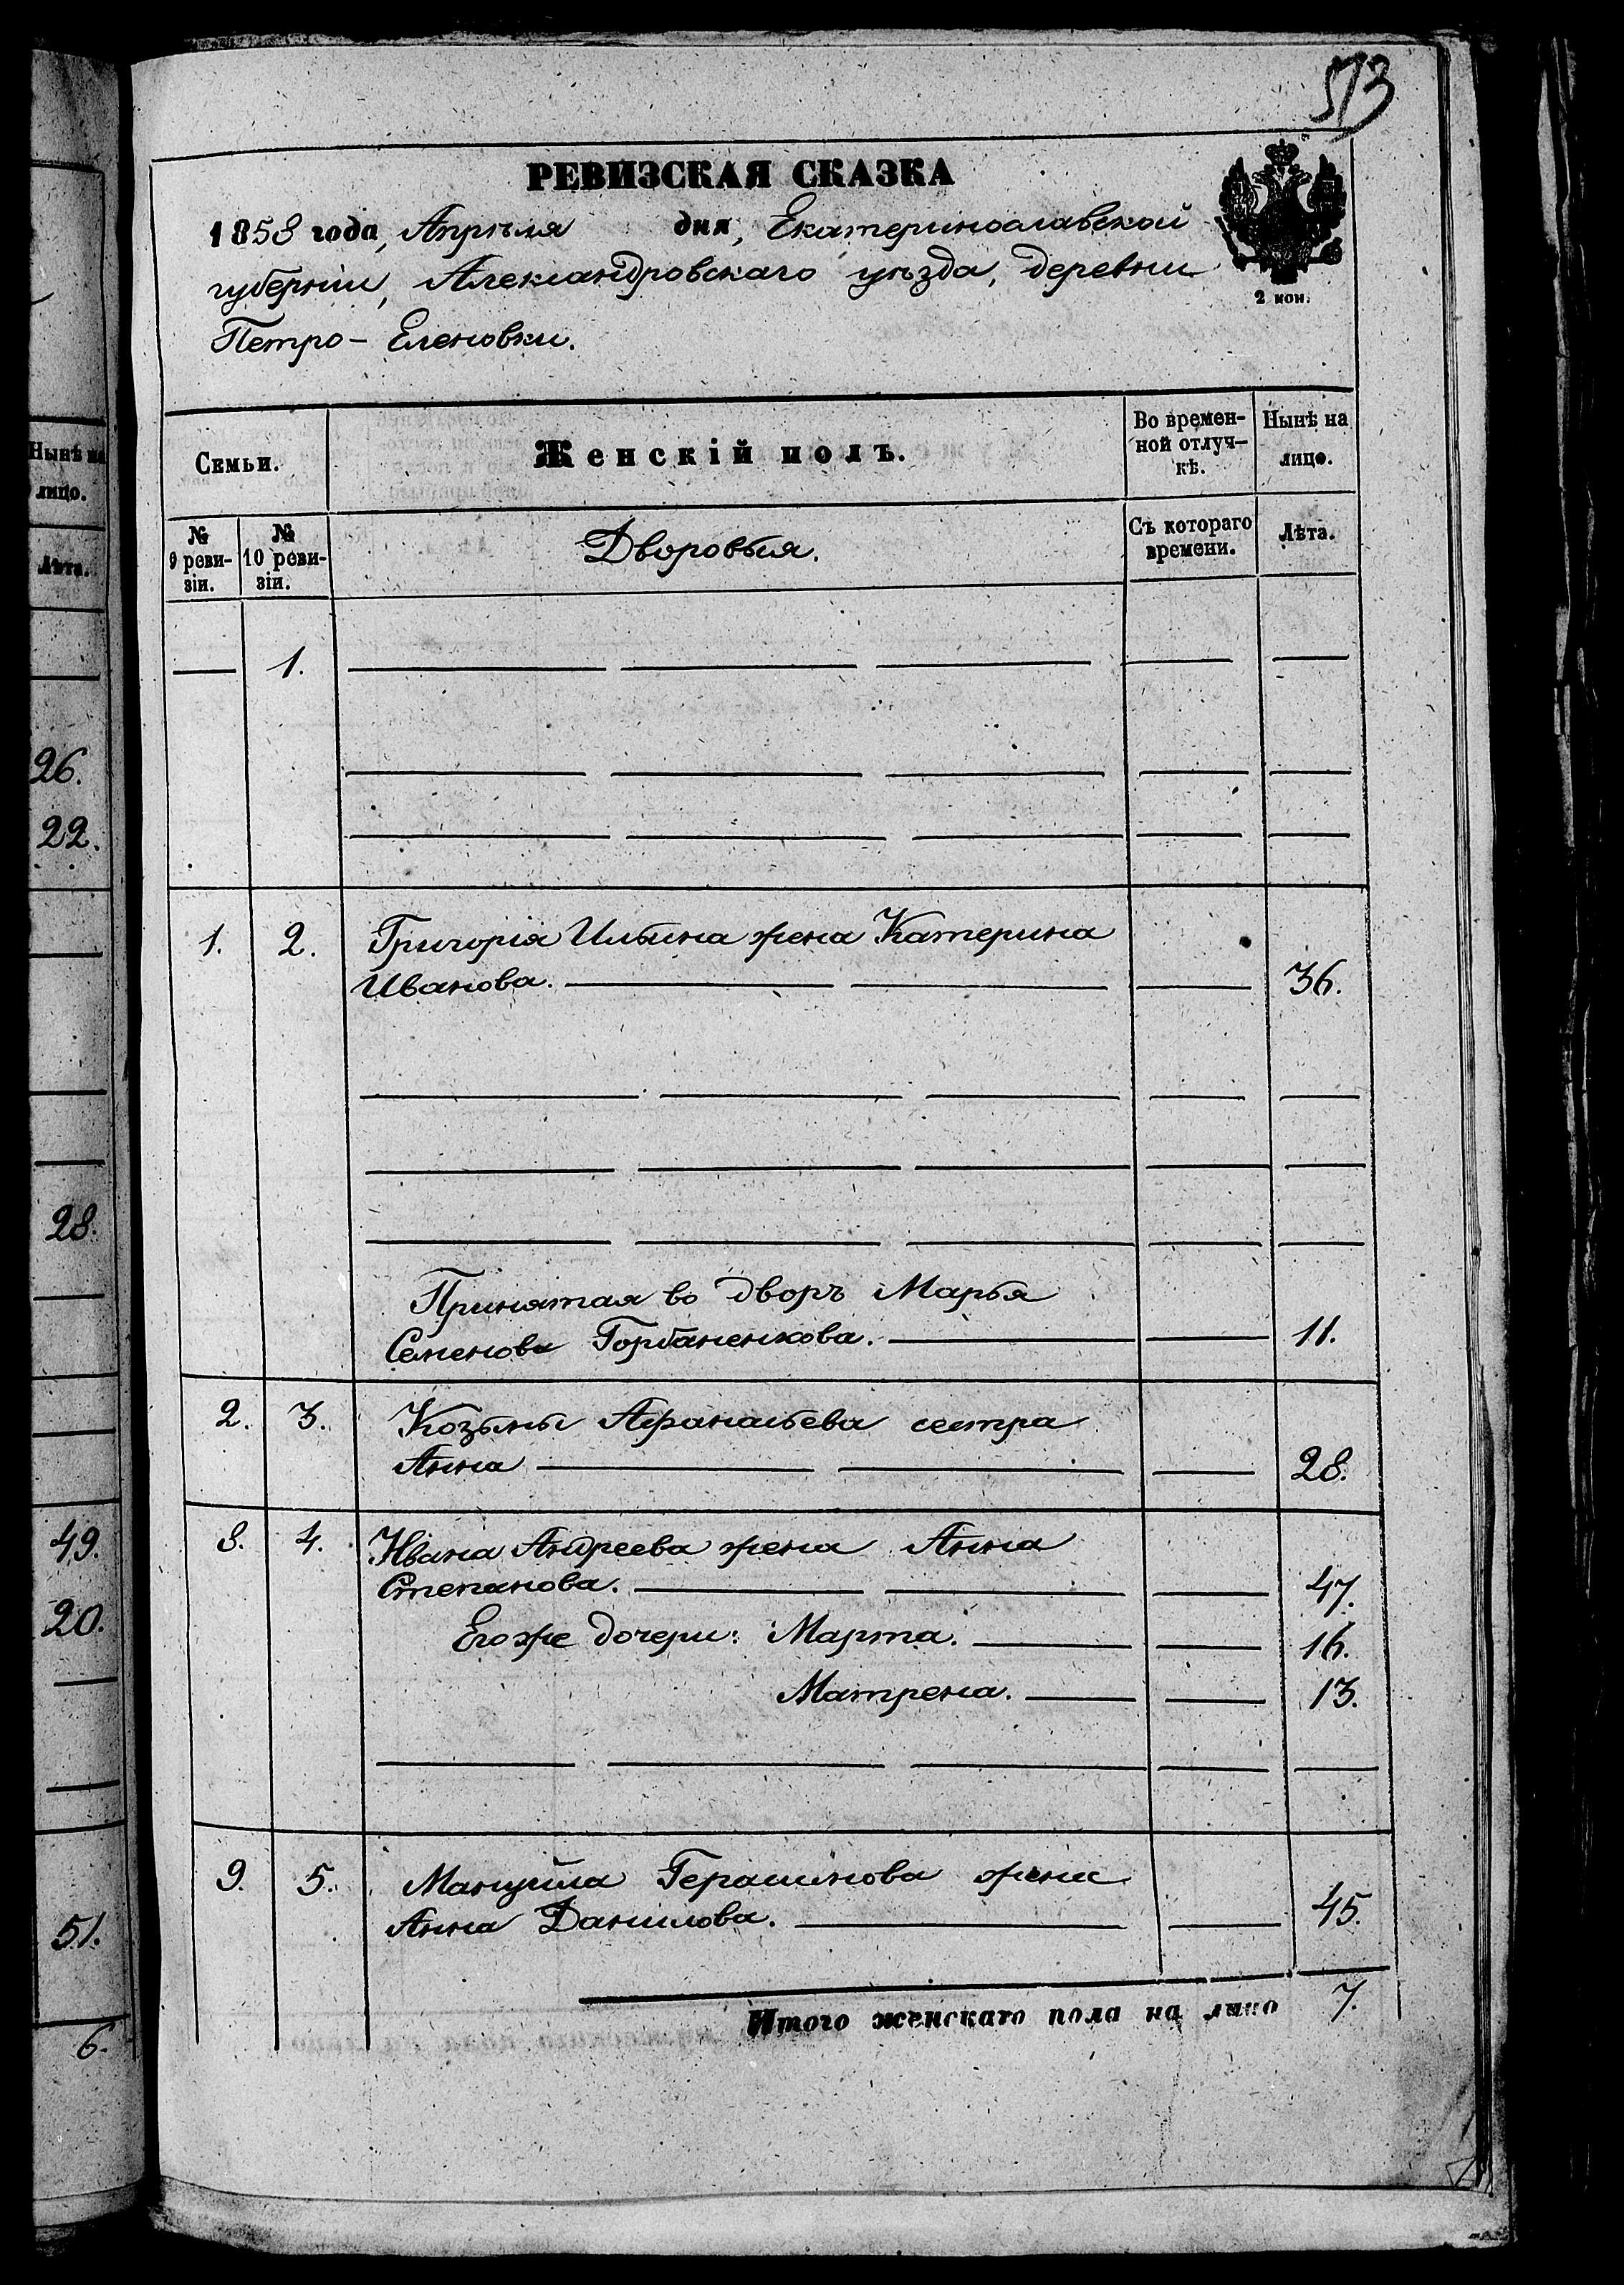 513
РЕВИЗСКАЯ СКАЗКА
1858 года, Апрѣля дня, Екатеринославской
губерніи, Александровскаго уѣзда, деревни
Петро- Еленовки.
2 коп.
Семьи.
Женскій полъ.
Во времен-
ной отлуч-
кѣ.
Нынѣ на
лицо.
№
9 реви-
зіи.
№
10 реви-
зіи.
Дворовыя.
Съ котораго
времени.
Лѣта.
1.
1. 2. Григорія Ильина жена Катерина
Иванова. 36.
Принятая во дворъ Марья
Семенова Горбаненкова. 11.
2. 3. Козьмы Афанасьева сестра
Анна 28.
8. 4. Ивана Андреева жена Анна
Степанова. 47.
Его же дочери: Марта. 16.
Матрена. 13.
9. 5. Мануйла Герасимова жена
Анна Данилова. 45.
Итого женскаго пола на лицо 7.
Нынѣ на
лицо.
Лѣта.
26.
22.
28.
49.
20.
51.
6.